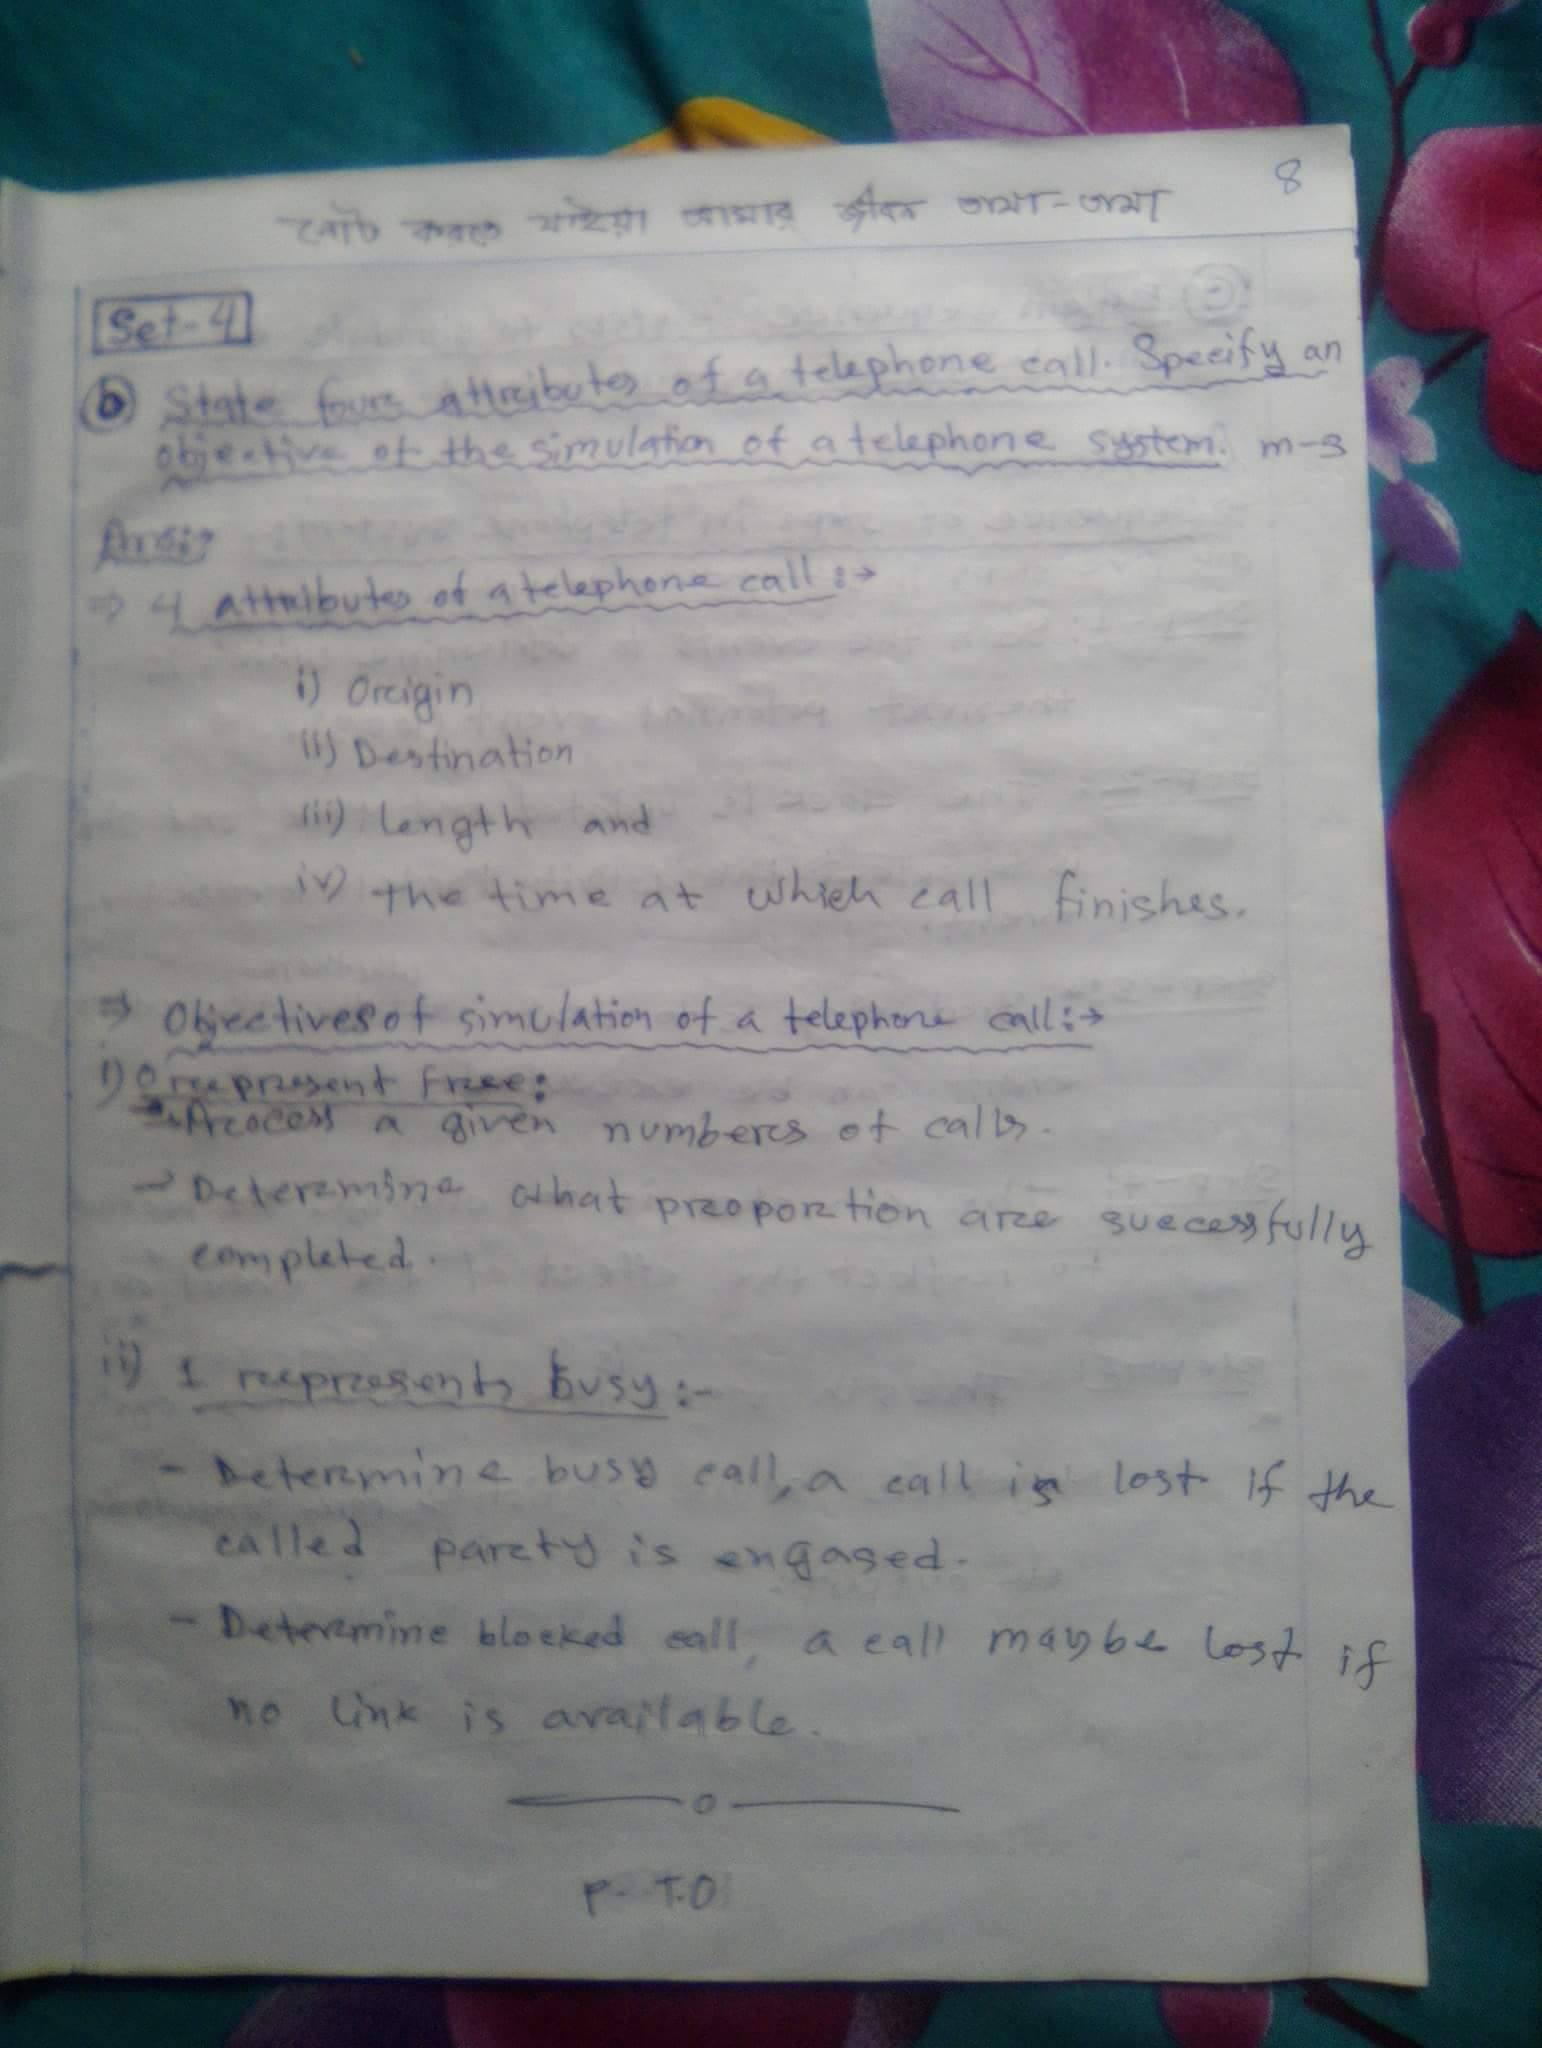 8
নোট করতে যাইয়া আমার জীবন তামা-তামা
Set-4
b State four attributes of a telephone call. Specify an
objective of the simulation of a telephone system. m-3
Ans:
⇒ 4 attributes of a telephone call :→
i) Origin
ii) Destination
iii) Length and
iv) The time at which call finishes.
⇒ Objectives of simulation of a telephone call :→
i) 0 represent free:
→ Process a given numbers of calls.
→ Determine what proportion are successfully
completed.
ii) 1 represents busy :-
- Determine busy call, a call is lost if the
called party is engaged.
- Determine blocked call, a call maybe lost if
no link is available.
P.T.O